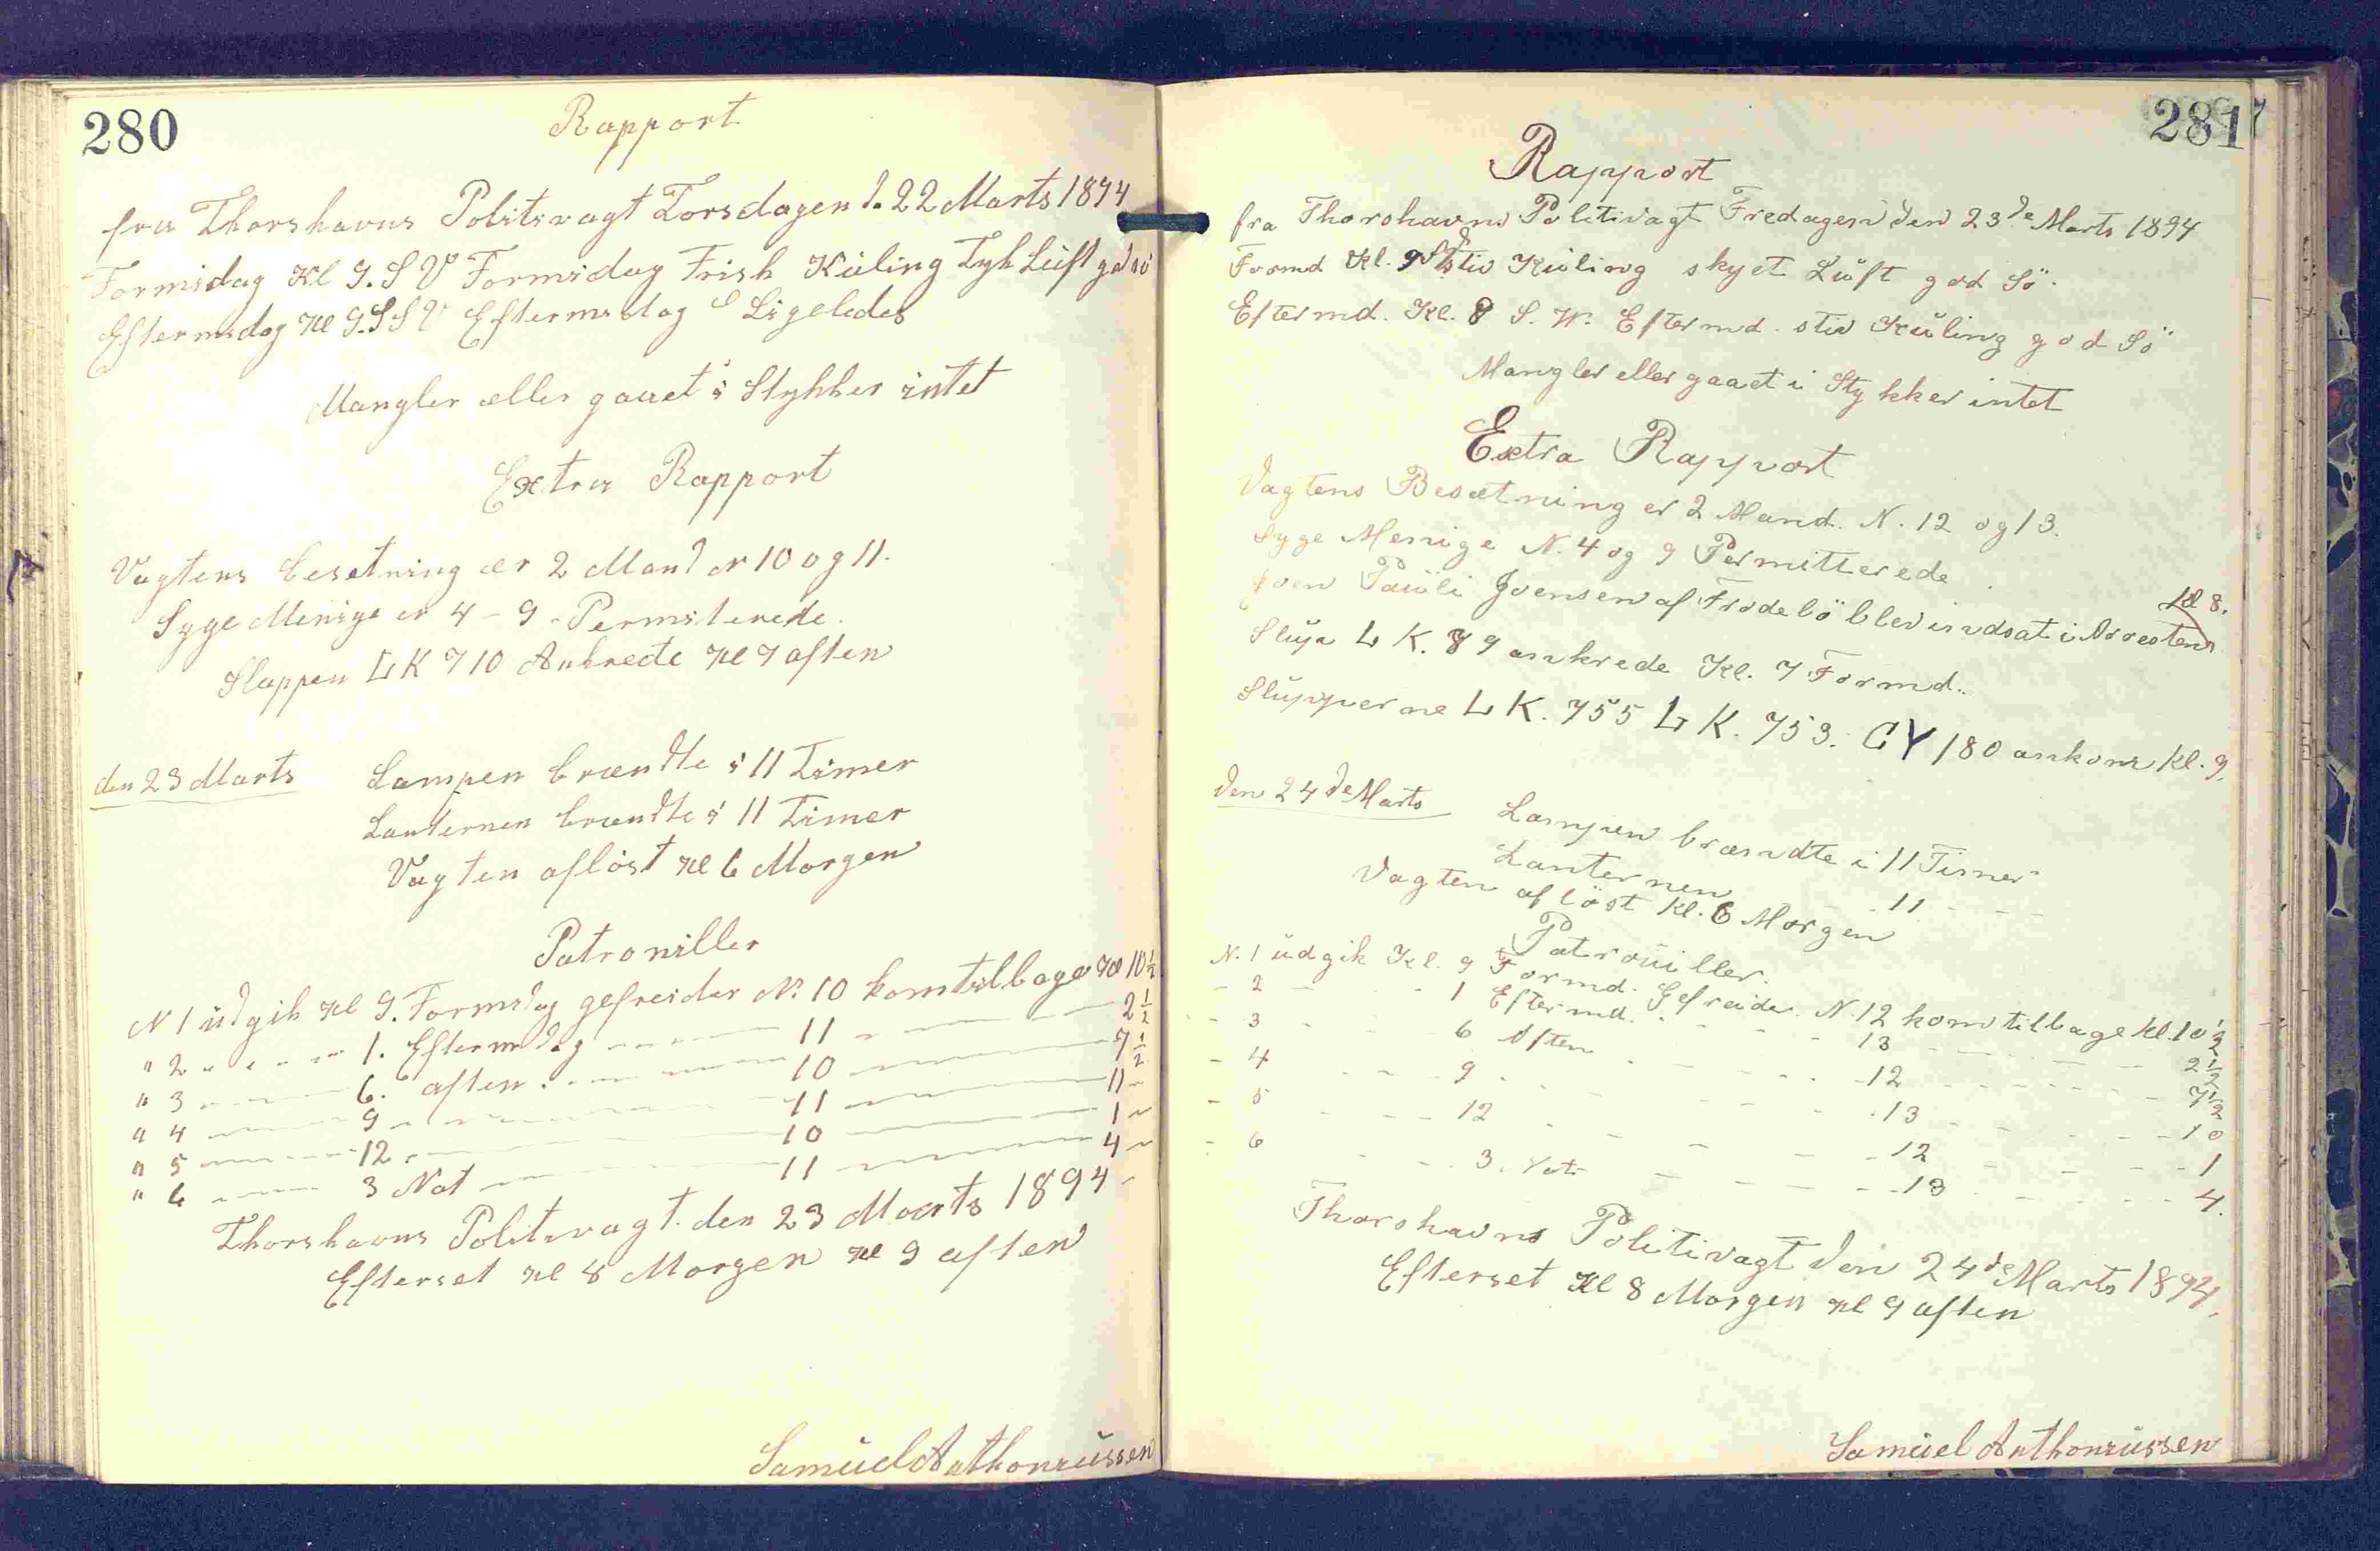 280
Rapport
fra Thorshavns Politivagt Torsdagen d. 22 Marts 1894
Formidag Kl 9. S V Formidag Frisk Kuling Tyk Luft god sö
Eftermidag Kl 9. S S V Eftermidag Ligeledes
Mangler eller gaaet i Stykker intet
Extra Rapport
Vagtens besetning er 2 Mand N 10 og 11.
Syge Menige N 4 - 9 - Permiterede.
Sluppen LK 710 Ankrede Kl 7 aften
den 23 Marts Lampen brændte i 11 Timer
Lanternen brændte i 11 Timer
Vagten aflöst Kl 6 Morgen
Patroniller
N 1 udgik Kl 9. Formidag gefreider N. 10 kom tilbage Kl 10 1/2
" 2 - - - - 1. Eftermidag - - - 11 - - - 2 1/2
" 3 - - - 6. aften. - - - 10 - - - 7 1/2
" 4 - - - 9 - - - 11 - - - 11 -
" 5 - - - 12 - - - 10 - - - 1 -
" 6 - - - 3 Nat - - - 11 - - - 4 -
Thorshavns Politivagt. den 23 Marts 1894 -
Efterset Kl 8 Morgen Kl 9 aften
Samuel Anthoniussen
281
Rapport
fra Thorshavns Politivagt Fredagen den 23de Marts 1894
Formd Kl. 9 stiv Kuling skyet Luft god Sö.
Eftermd. Kl. 8 S. W. Eftermd. stiv Kuling god Sö
Mangler eller gaaet i Stykker intet
Extra Rapport
Vagtens Besætning er 2 Mand. N. 12 og 13.
Syge Menige N. 4 og 9 Permitterede
Joen Pauli Joensen af Frodebö blev indsat i Arresten Kl 8.
Slup L K. 89 ankrede Kl. 7 Formd.
Slupperne L K. 755 L K. 753. GY 180 ankom Kl. 9.
den 24de Marts Lampen brændte i 11 Timer
Lanternen - - 11 - - -
Vagten aflöst Kl. 6 Morgen
Patrouiller.
N. 1 udgik Kl. 9 Formd. Gefreider N. 12 kom tilbage Kl. 10 1/2
- 2 - - 1 Eftermd. - - 13 - - - 2 1/2
- 3 - - 6 Aften - - - 12 - - - 7 1/2
- 4 - - - 9 - - - 13 - - - 10
- 5 - - - 12 - - - 12 - - - 1
- 6 - - - 3. Nat - - - 13 - - - 4.
Thorshavns Politivagt den 24de Marts 1894.
Efterset Kl 8 Morgen Kl 9 aften
Samuel Anthoniussen